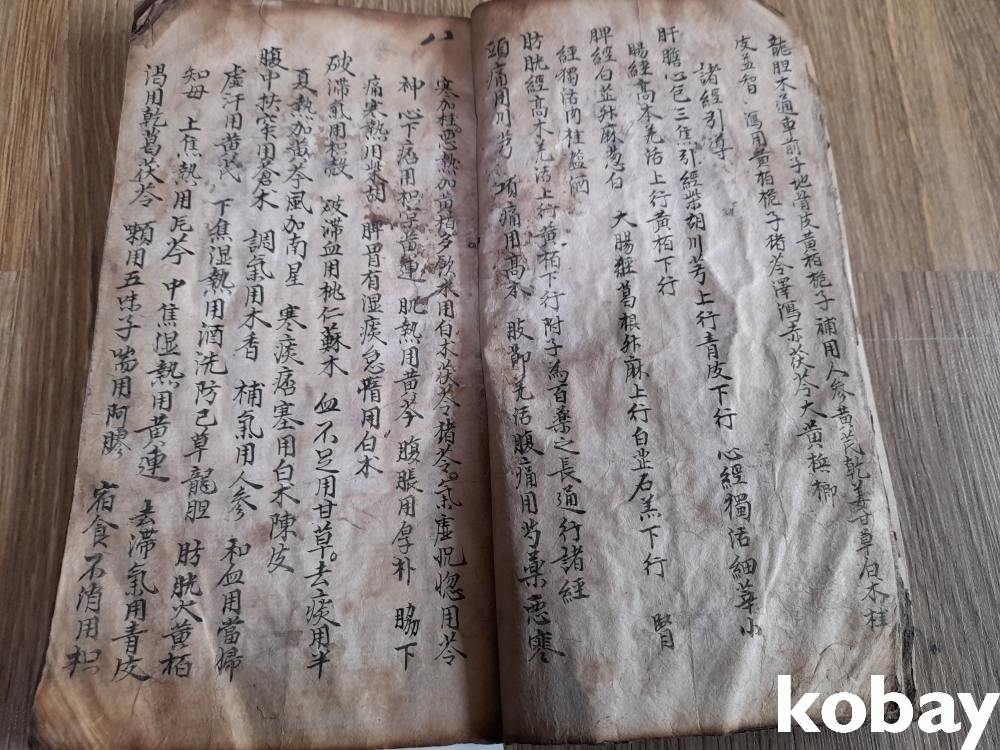 龍胆木通車前子地骨皮黄栢梔子補用人參黄芪乾姜甘草白木桂
皮益智 瀉用黄栢梔子猪苓澤瀉赤茯苓大黄梹榔
諸經引導
肝膽心包三焦引經柴胡川芎上行青皮下行 心經獨活細莘小
腸經高本羌活上行黄栢下行
脾經白芷升麻葱白 大腸經葛根升麻上行白芷石羔下行 腎
經獨活肉桂盐酒
肪胱經高木羌活上行黄栢下行附子為百藥之長通行諸經
頭痛用川芎 項痛用高本 肢節羌活腹痛用芍藥悪寒
八
寒加桂悪熱加黄栢多飲水用白木茯苓猪苓。氣虚怳惚用茯
神 心下痞用枳实黄連 肌熱用黄芩 腹脹用厚朴 脇下
痛寒熱用柴胡 脾胃有湿痰怠惰用白木
破滯氣用枳殻 破滯血用桃仁蘇木 血不足用甘草。去痰用半
夏熱加黄芩風加南星 寒痰痞塞用白木陳皮
腹中狹窄用蒼木 調氣用木香 補氣用人參 和血用當歸
虚汗用黄芪 下焦湿熱用酒洗防己草龍胆 肪胱火黄栢
知母 上焦熱用片芩 中焦湿熱用黄連 去滯氣用青皮
渴用乾葛茯苓 嗽用五味子 喘用阿膠 宿食不消用枳
kobay